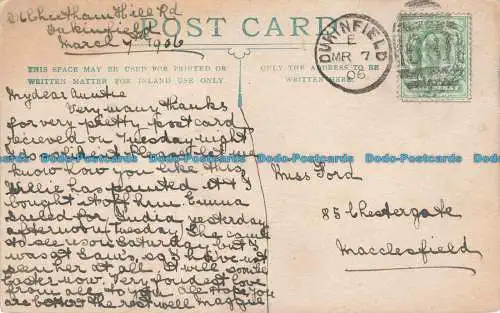 Cheetham Hill Rd
Dukinfield
March 7 1906
POST CARD
THIS SPACE MAY BE USED FOR PRINTED OR
WRITTEN MATTER FOR INLAND USE ONLY.
THE ADDRESS TO
BE WRITTEN HERE.
DUKINFIELD
E
MR 7
06
My dear Auntie
Very many thanks
for very pretty postcard
recieved on Tuesday night
know how you like this,
Willie has painted it & I
bought it off him. Emma
sailed for India yesterday
afternoon Tuesday. She came
to see us on Saturday, but I
was at Lew's, so I have not
seen her at all. I will
Easter now. Very fondest love
from all to you all. Hope you
are better. The rest well Maggie
Miss Ford
85 Chestergate
Macclesfield
Dodo-Postcards Dodo-Postcards Dodo-Postcards Dodo-Postcards